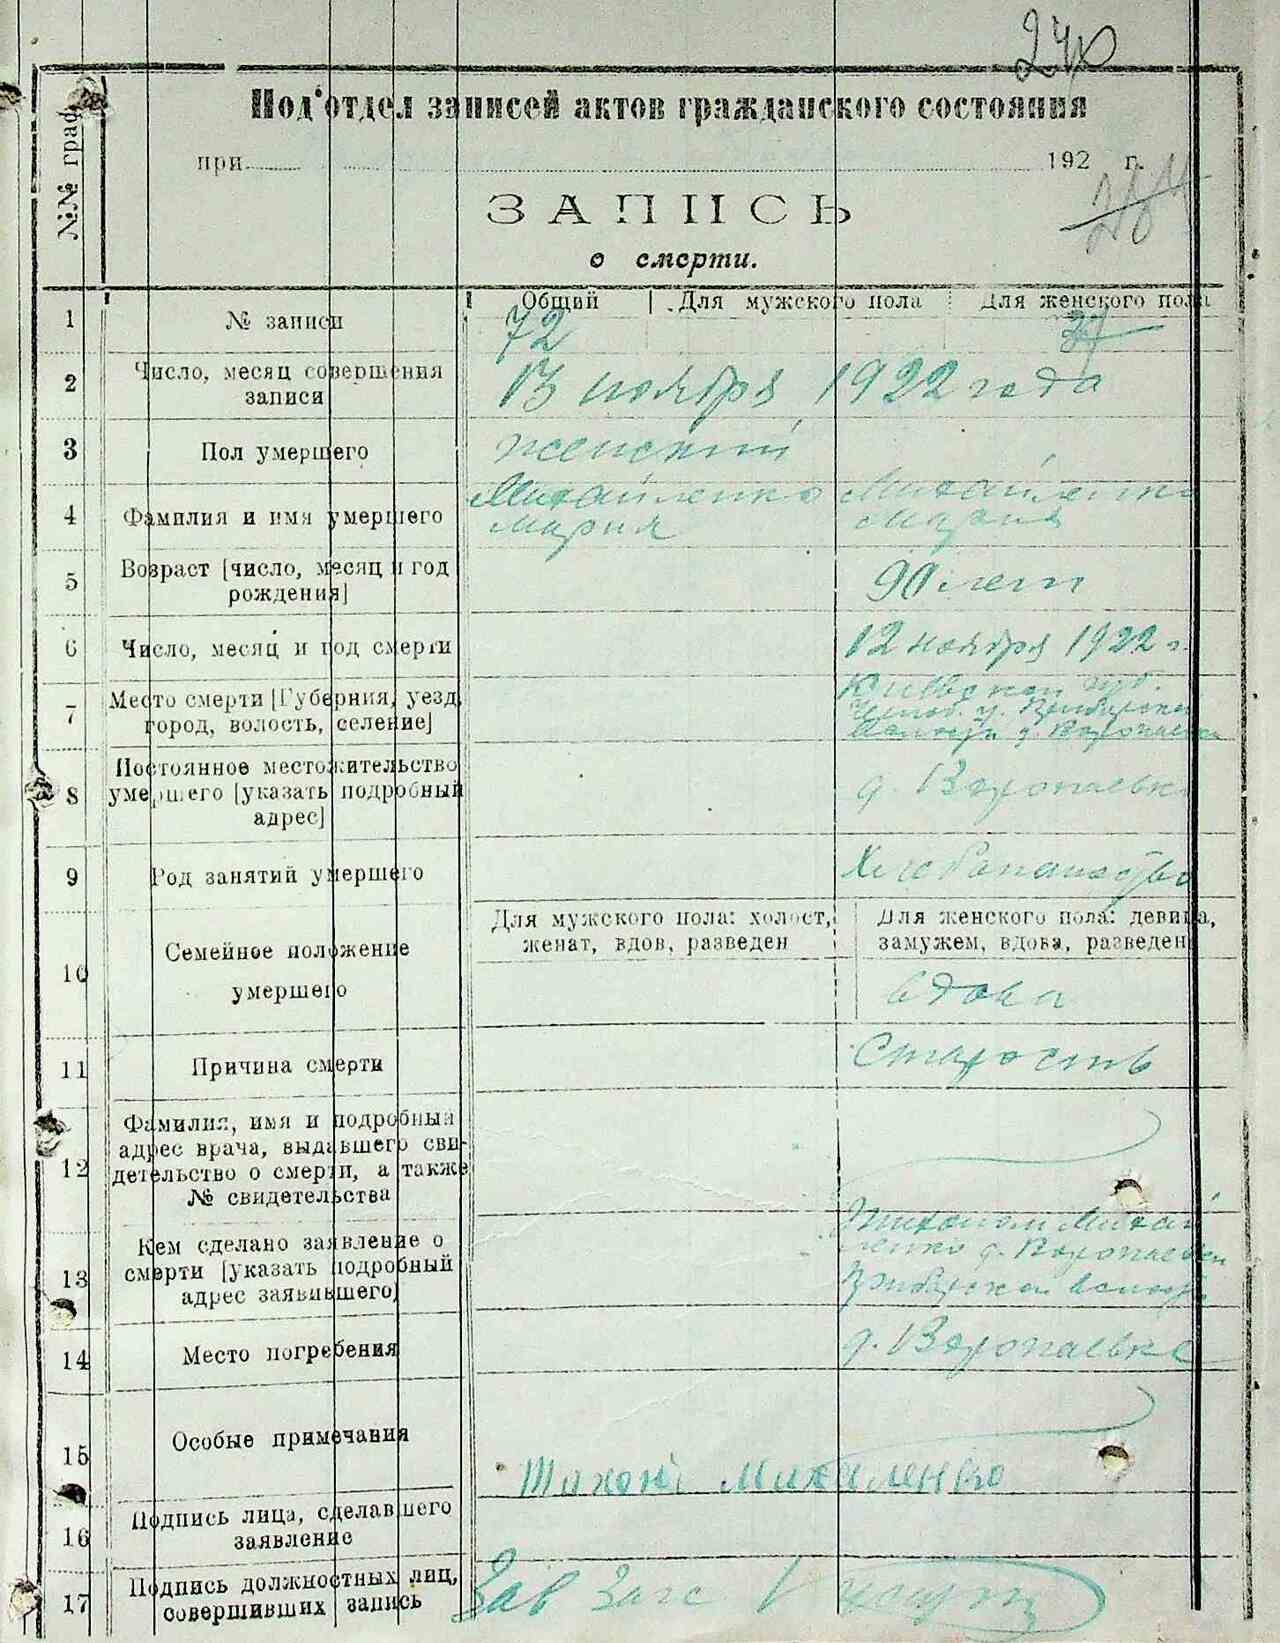 240
Под'отдел записей актов гражданского состояния
№№ граф.
при 192 г.
284
ЗАПИСЬ
о смерти.
Общий Для мужского пола Для женского пола
1 № записи 72 37
2 Число, месяц совершения
записи
13 ноября 1922 года
3 Пол умершего женский
4 Фамилия и имя умершего
Михайленко
Мария
Михайленко
Мария
5 Возраст [число, месяц и год
рождения]
90 лет
6 Число, месяц и год смерти 12 ноября 1922 г.
7 Место смерти [Губерния, уезд,
город, волость, селение]
Киевской губ.
Черноб. у.
волости д. Воропаевка
8 Постоянное местожительство
умершего [указать подробный
адрес]
д. Воропаевка
9 Род занятий умершего Хлебопашество
10 Семейное положение
умершего
Для мужского пола: холост,
женат, вдов, разведен
Для женского пола: девица,
замужем, вдова, разведен
вдова
11 Причина смерти Старость
12 Фамилия, имя и подробный
адрес врача, выдавшего сви-
детельство о смерти, а также
№ свидетельства
13 Кем сделано заявление о
смерти [указать подробный
адрес заявившего]
Тихоном Михай
ленко д. Воропаевки
волости
14 Место погребения д. Воропаевке
15 Особые примечания
Тихон Михаленко
16 Подпись лица, сделавшего
заявление
17 Подпись должностных лиц,
совершивших запись
Зав Загс